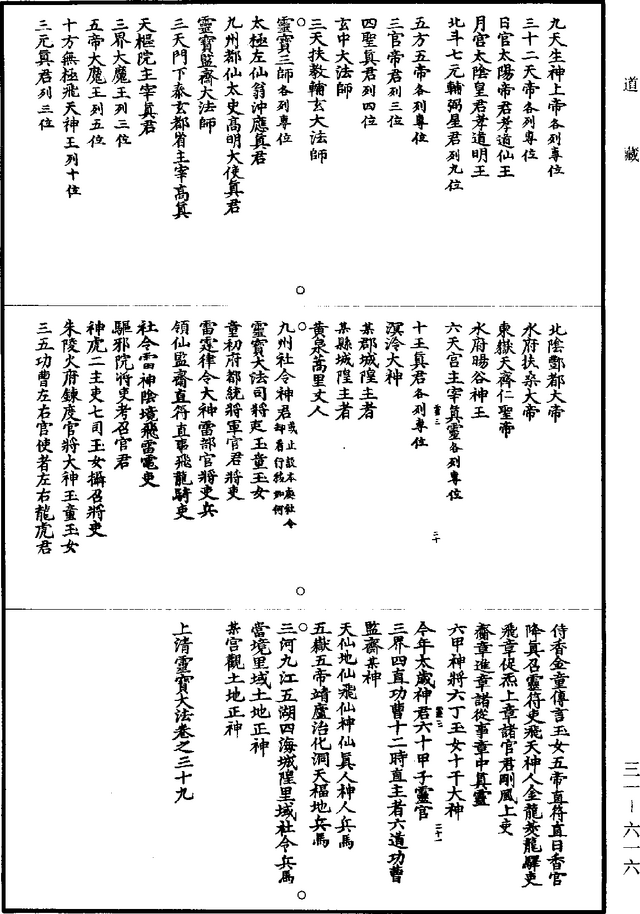 道藏
九天生神上帝各列專位
三十二天帝各列專位
日宮太陽帝君孝道仙王
月宮太陰皇君孝道明王
北斗七元輔弼星君列九位
五方五帝各列專位
三官帝君列三位
四聖真君列四位
玄中大法師
三天扶教輔玄大法師
○
靈寶三師各列專位
太極左仙翁沖應真君
九州都仙太史高明大使真君
靈寶監齋大法師
三天門下泰玄都省主宰高真
天樞院主宰真君
三界大魔王列三位
五帝大魔王列五位
十方無極飛天神王列十位
三元真君列三位
○
北陰酆都大帝
水府扶桑大帝
東嶽天齊仁聖帝
水府暘谷神王
六天宮主宰真靈各列專位
十王真君各列專位
溟泠大神
某郡城隍主者
某縣城隍主者
黃泉蒿里丈人
○
九州社令神君或止設本廟社令却看行持如何
靈寶大法司將吏玉童玉女
童初府都統將軍官君將吏
雷霆律令大神雷部官將吏兵
領仙監齋直符直事飛龍騎吏
社令雷神陰境飛雷電吏
驅邪院將吏考召官君
神虎二主吏七司玉女攝召將吏
朱陵火府鍊度官將大神玉童玉女
三五功曹左右官使者左右龍虎君
○
侍香金童傳言玉女五帝直符直日香官
降真召靈符吏飛天神人金龍茭龍驛吏
飛章促炁上章諸官君剛風上吏
齋章進章諸從事章中真靈
六甲神將六丁玉女十干大神
今年太歲神君六十甲子靈官
三界四直功曹十二時直主者六道功曹
監齋某神
天仙地仙飛仙神仙真人神人兵馬
五嶽五帝靖廬治化洞天福地兵馬
○
三河九江五湖四海城隍里域社令兵馬
當境里域土地正神
某宮觀土地正神
上清靈寶大法卷之三十九
○
三一－六一六